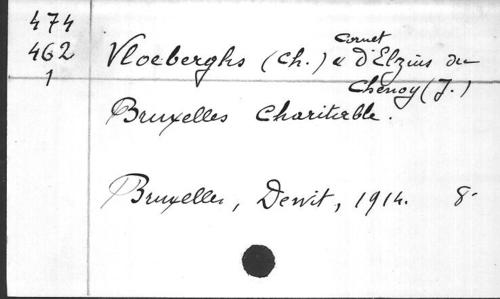 474
462
1
Cornet
Vloeberghs (Ch.) & d'Elzius du
Chenoy (J.)
Bruxelles Charitable.
Bruxelles, Dewit, 1914. 8-